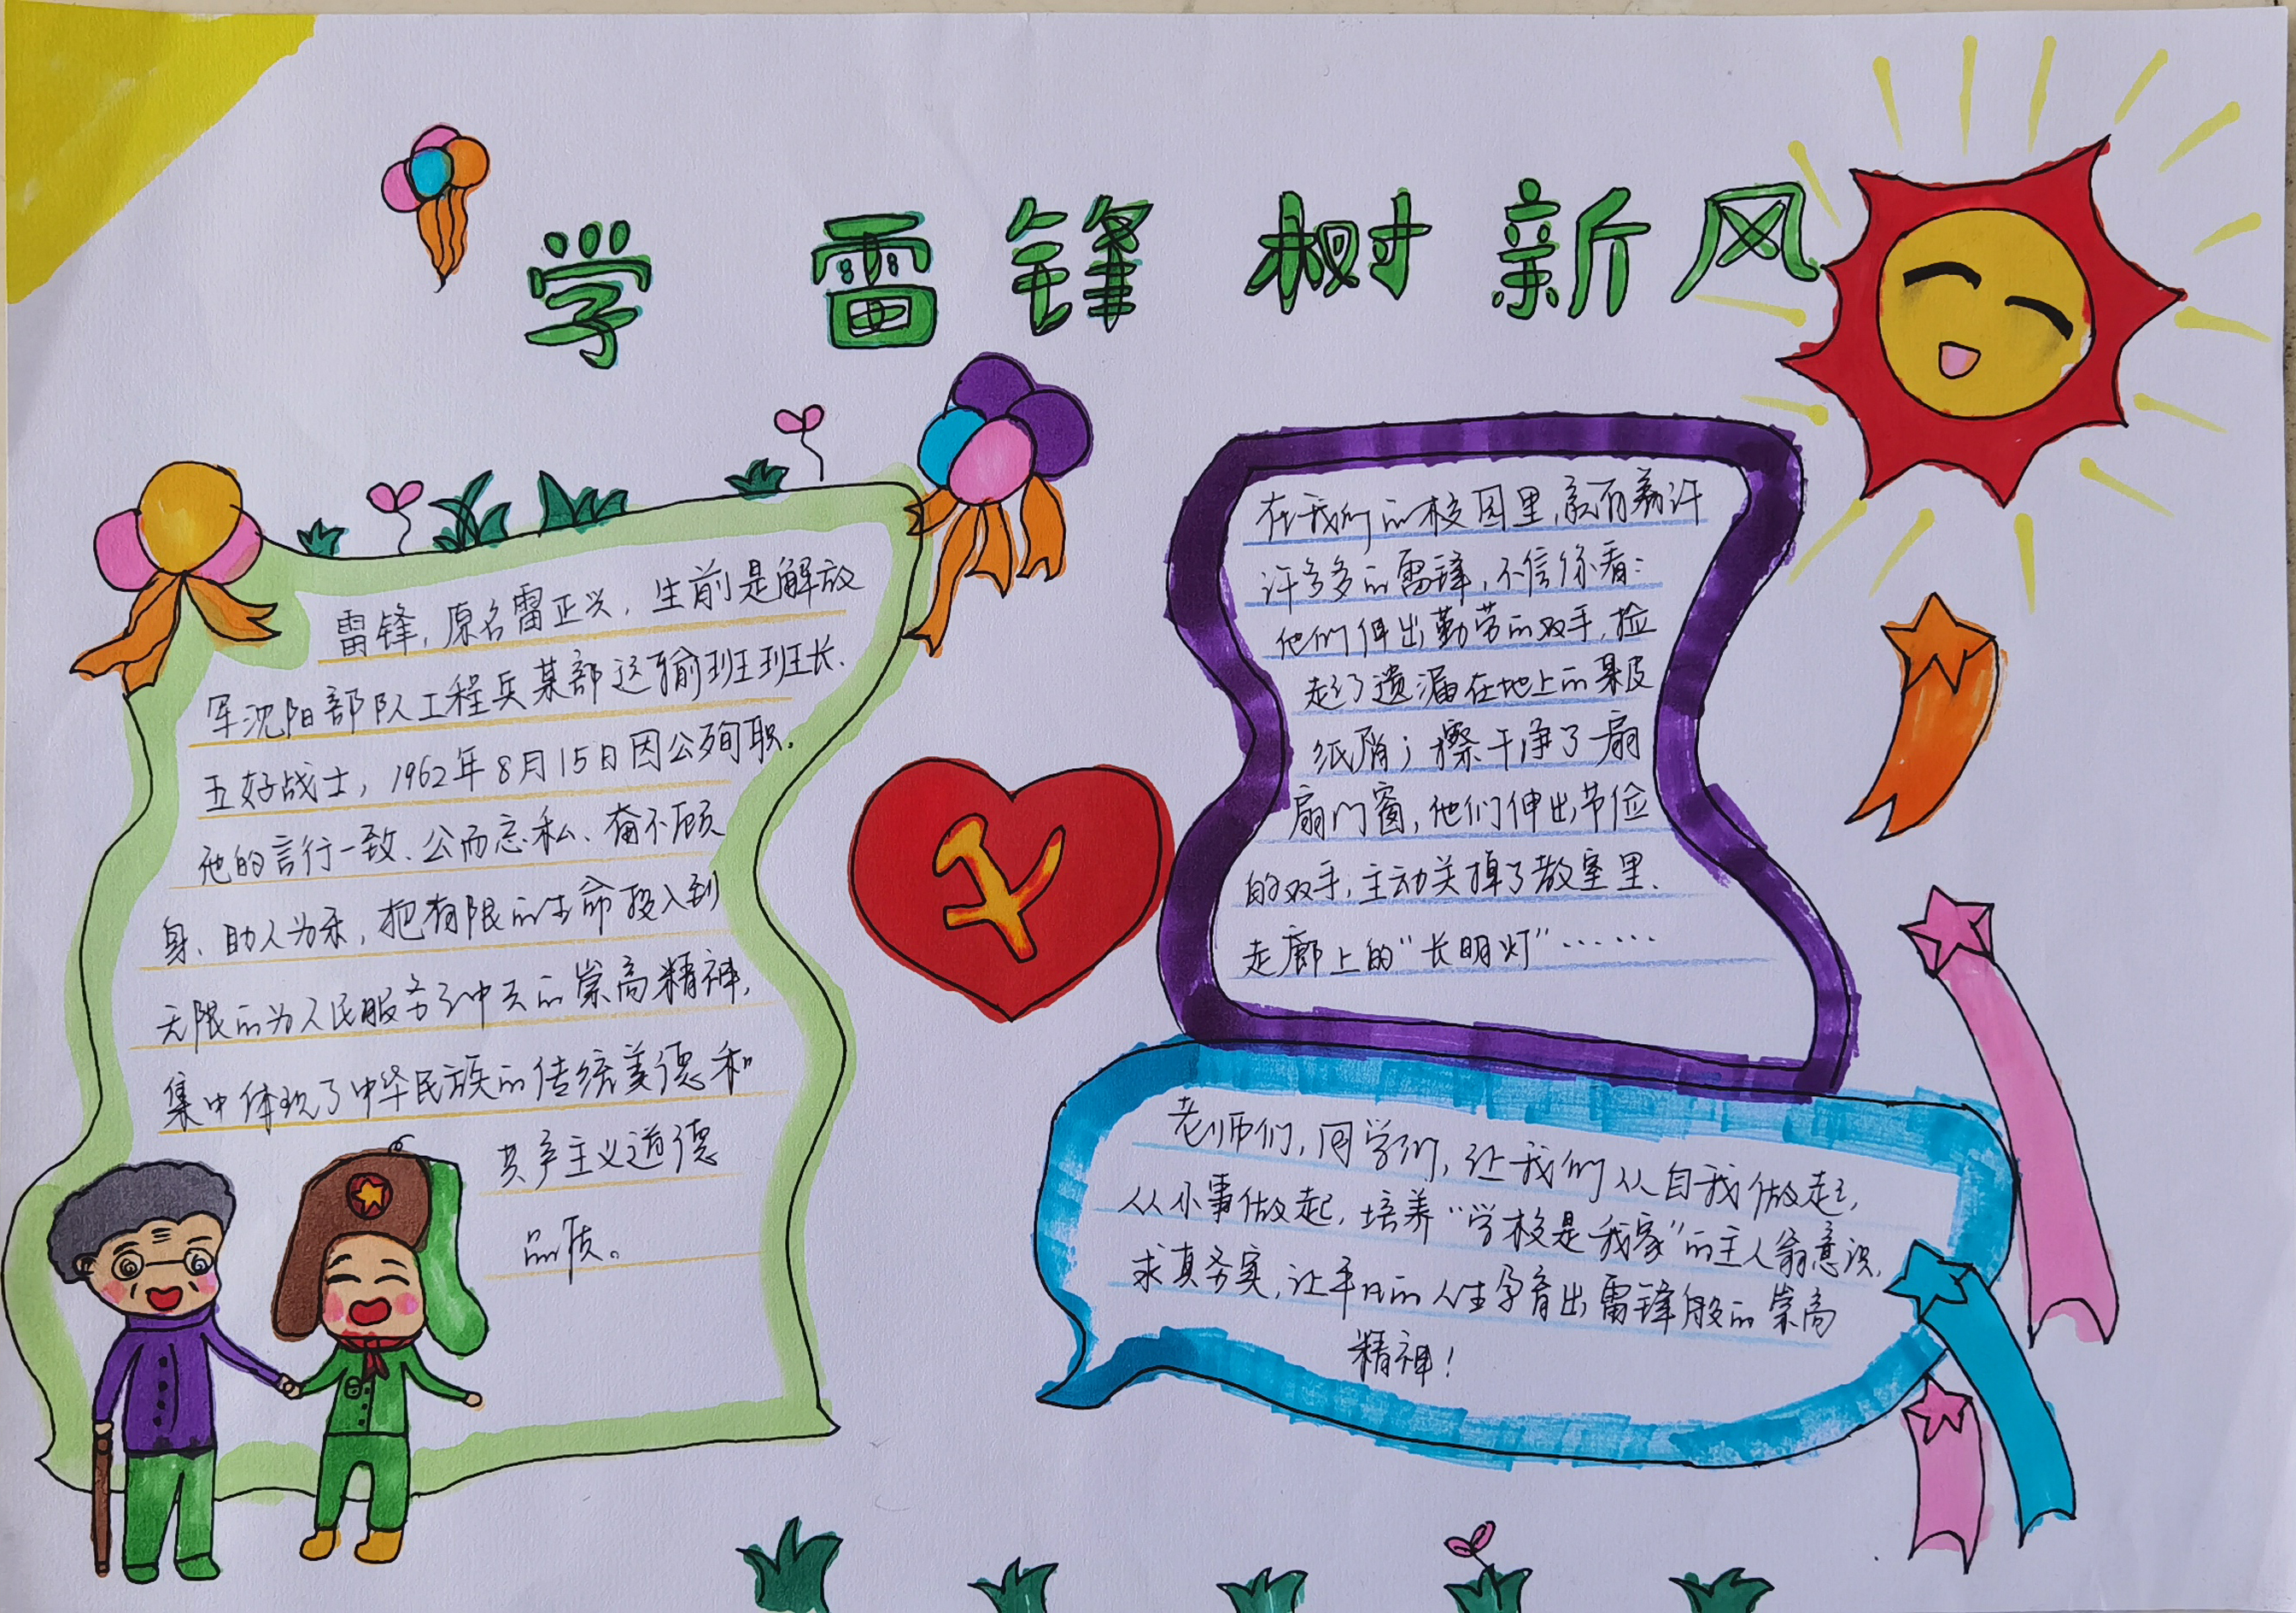 学 雷锋 树新风
雷锋，原名雷正兴，生前是解放
军沈阳部队工程兵某部运输班班长、
五好战士，1962年8月15日因公殉职。
他的言行一致、公而忘私、奋不顾
身、助人为乐，把有限的生命投入到
无限的为人民服务之中去的崇高精神，
集中体现了中华民族的传统美德和
共产主义道德
品质。
在我们的校园里，就有着许
许多多的雷锋，不信你看：
他们伸出勤劳的双手，捡
起了遗漏在地上的果皮
纸屑；擦干净了扇
扇门窗，他们伸出节俭
的双手，主动关掉了教室里、
走廊上的“长明灯”……
老师们，同学们，让我们从自我做起，
从小事做起，培养“学校是我家”的主人翁意识，
求真务实，让平凡的人生孕育出雷锋般的崇高
精神！